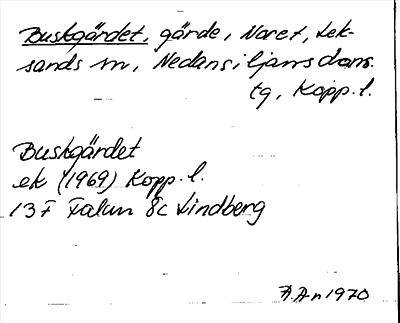 Buskgärdet, gärde, Noret, Lek-
sands sn, Nedansiljans doms.
tg, Kopp. l.
Buskgärdet
ek (1969) Kopp. l.
13F Falun 8c Lindberg
A.An 1970